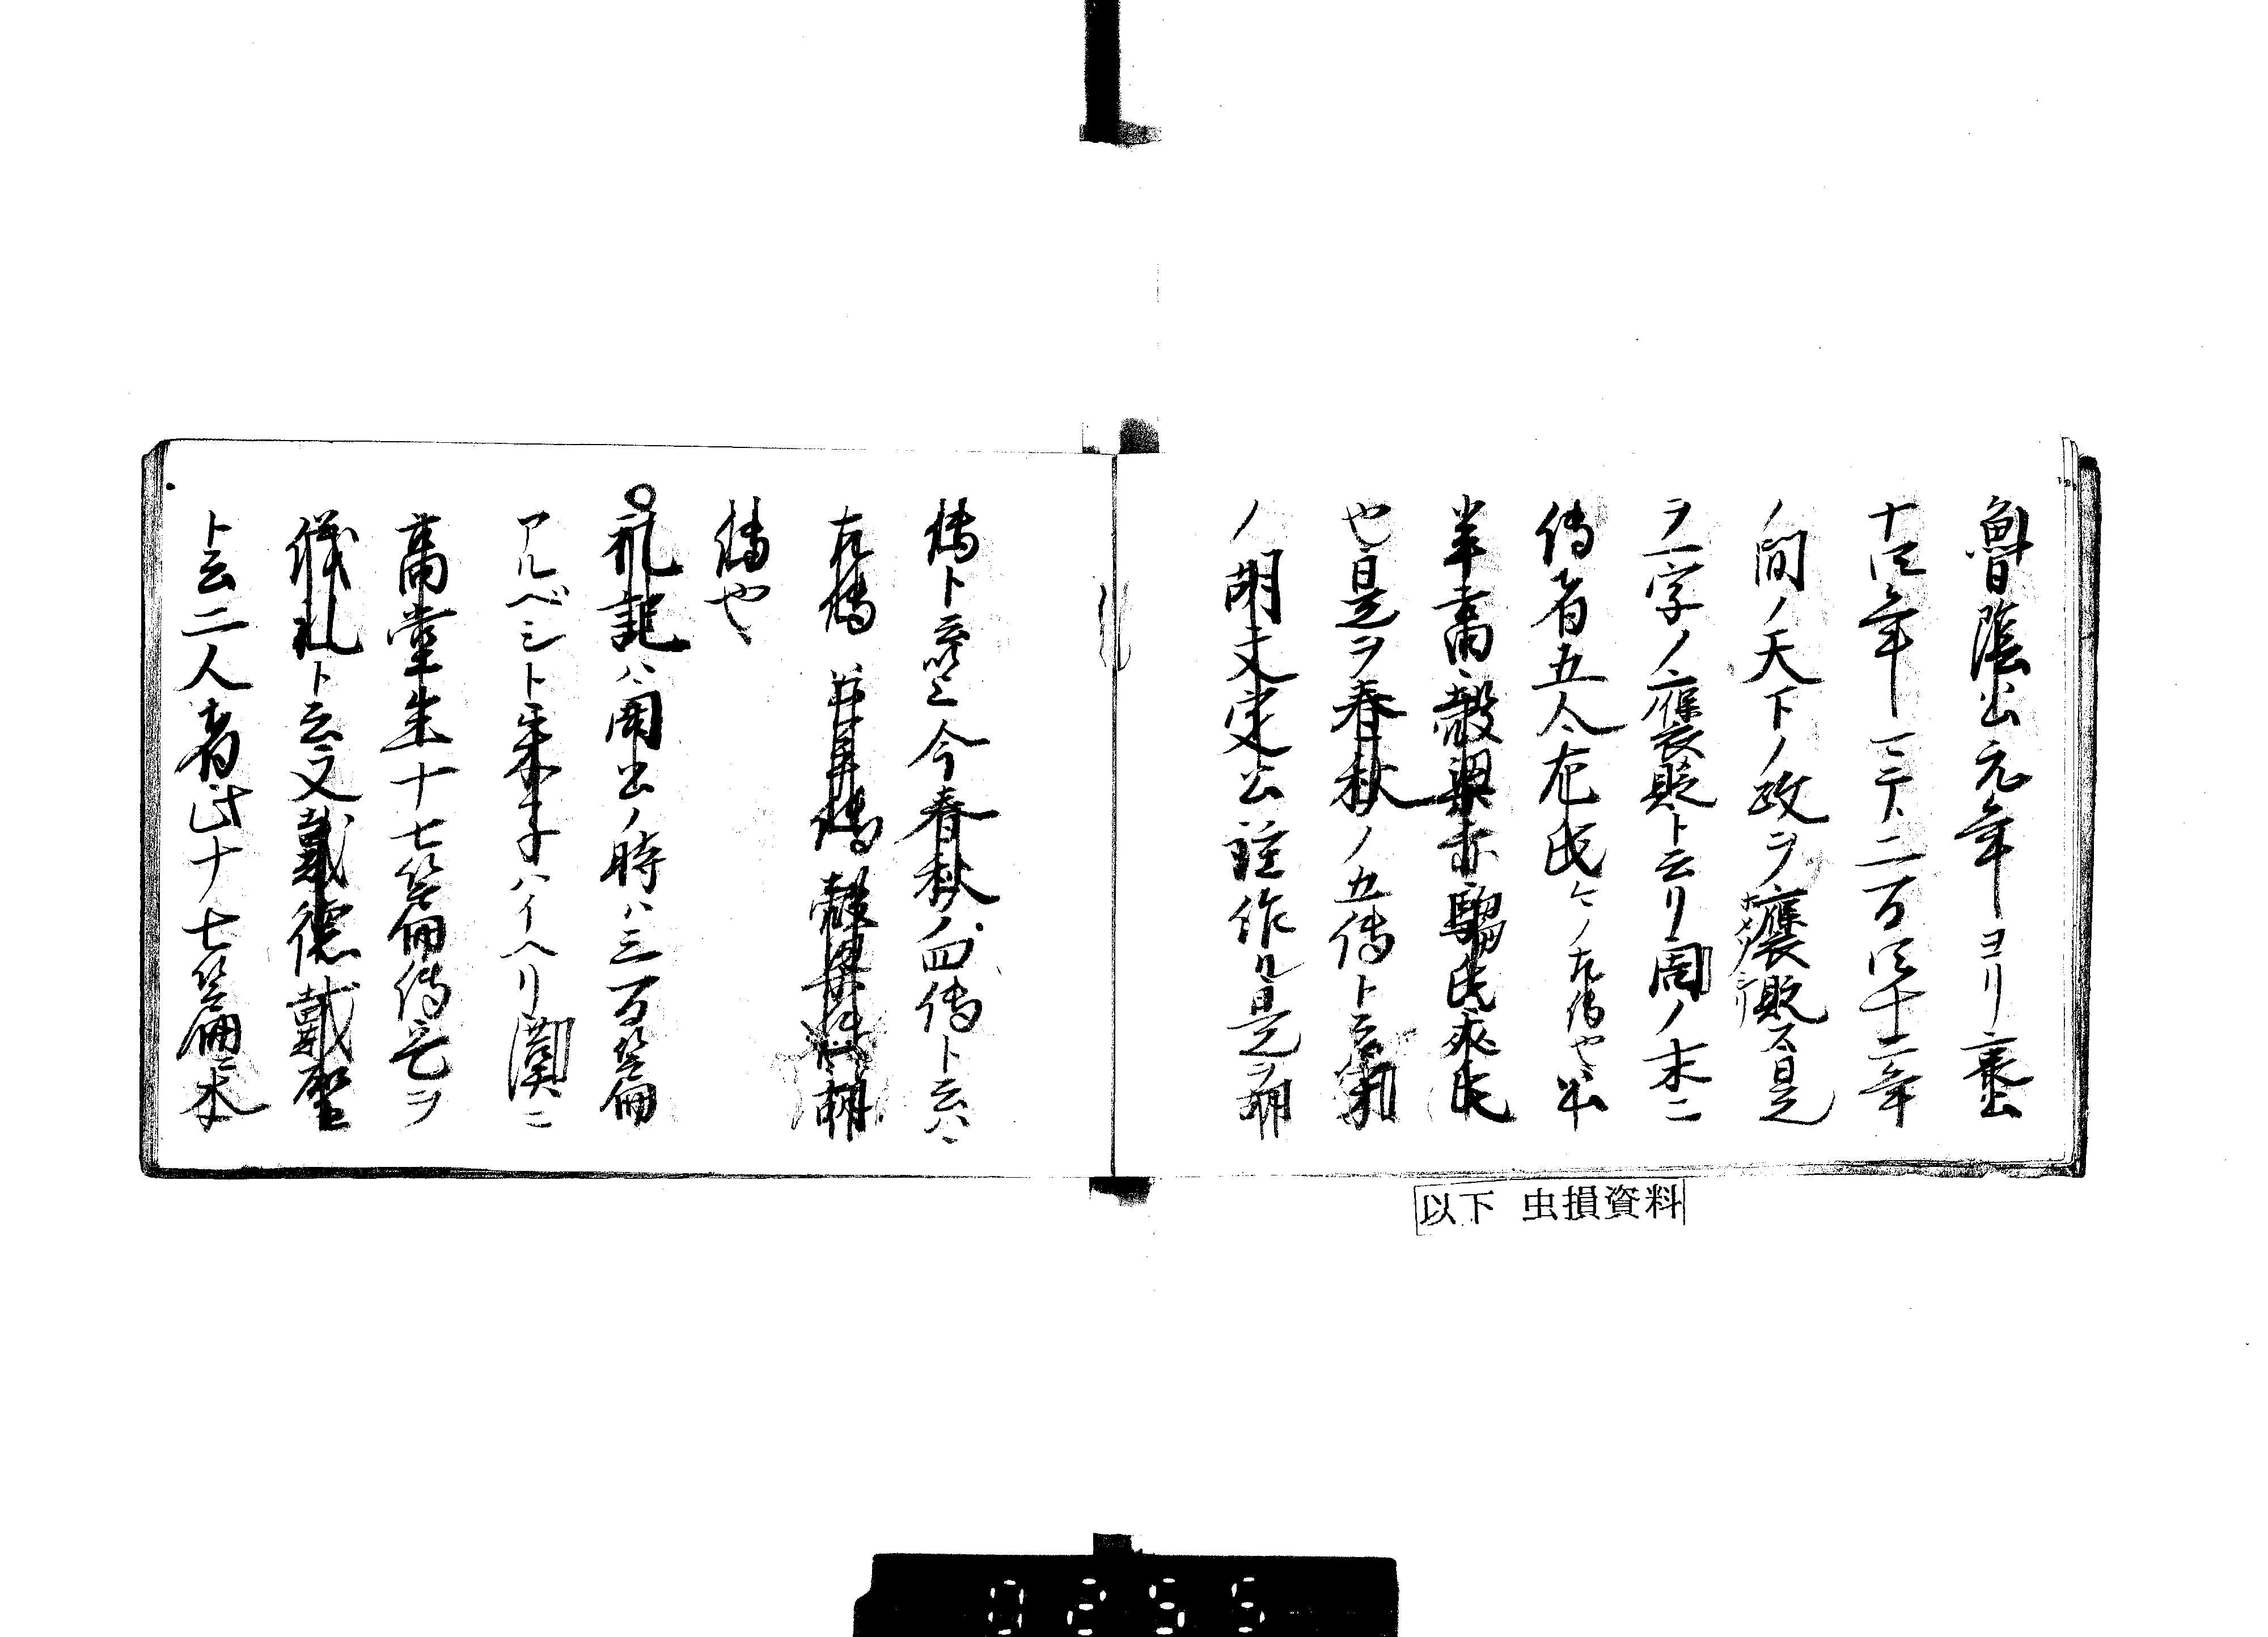 魯隠公元年ヨリ襄公
十四年ニ二百四十二年
ノ間ノ天下ノ政ヲ褒貶ス是
ヲ一字ノ褒貶ト云リ周ノ末ニ
傳者五人左氏今ノ左傳也公
羊高穀梁赤騶氏夾氏
也是ヲ春秋ノ五傳ト云
ノ胡文定公註作レリ是ヲ胡
傳ト云今春秋ノ四傳ト云ハ
左傳公羊傳穀梁傳胡
傳也
礼記ハ周公ノ時ハ三百篇
アルベシト朱子ハイヘリ漢ニ
高堂生十七篇傳之ヲ
儀礼ト云又戴徳戴聖
ト云二人者此十七篇ニ本
以下 虫損資料
0255